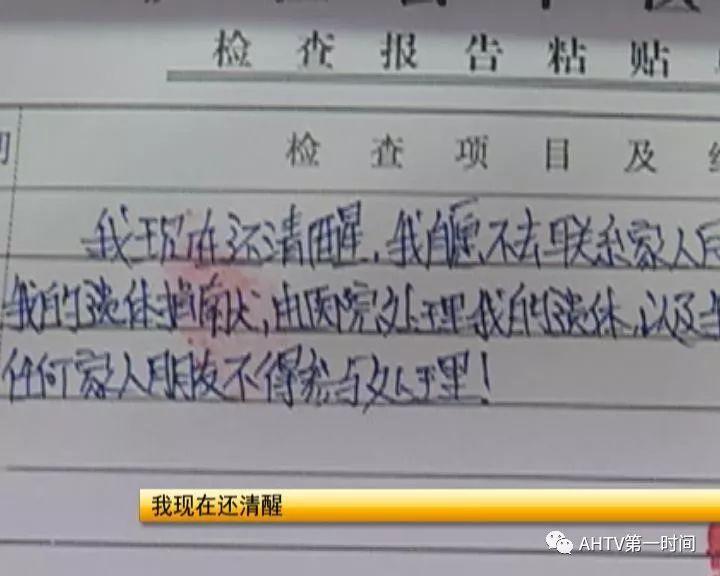 检查报告粘贴
检查项目及
我现在还清醒，我自愿不去联系家人
我的遗体捐献，由医院处理我的遗体，以及
任何家人朋友不得参与处理！
我现在还清醒
AHTV第一时间